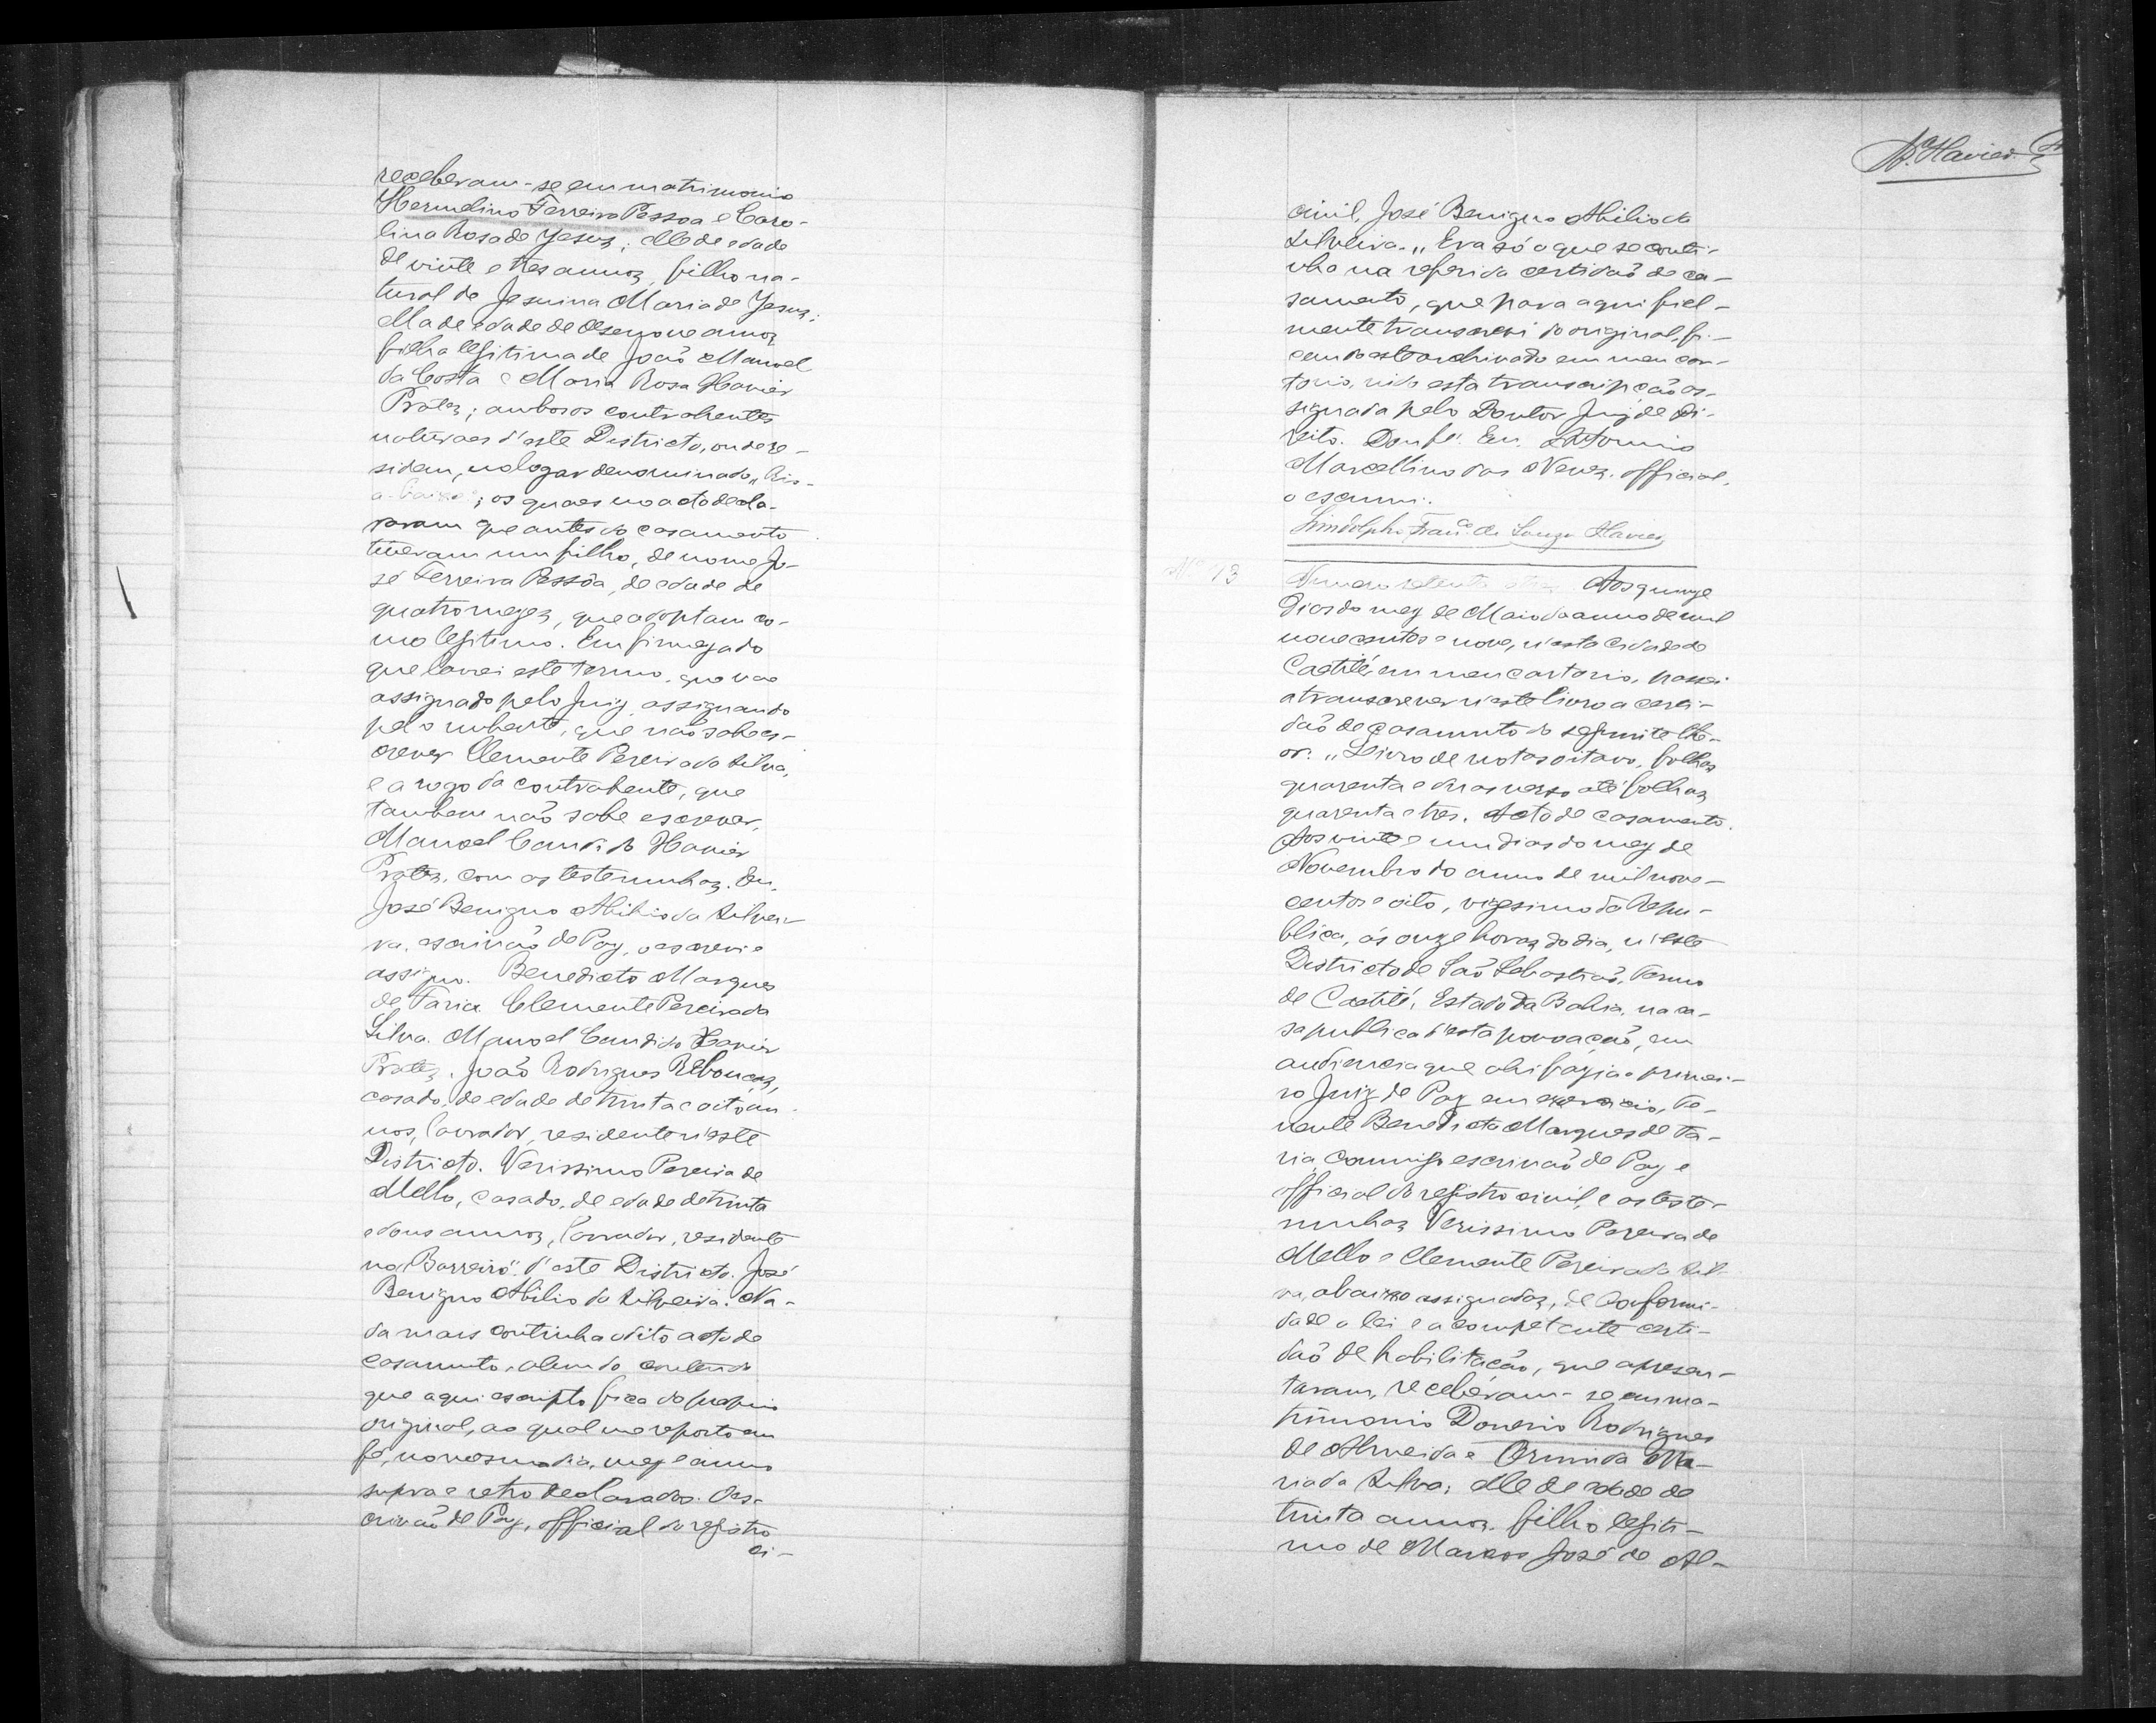 receberam-se em matrimonio
Hermelino Ferreira Pessoa e Caro-
lina Rosa de Jesus; elle de edade
de vinte e tres annos, filho na-
tural de Jesuina Maria de Jesus;
ella de edade de desenove annos
filha legitima de João Manoel
da Costa e Maria Rosa Xavier
Prates; ambos os contrahentes
naturaes d'este Districto, onde re-
sidem, no logar denominado "Ria-
; os quaes no acto decla-
raram que antes do casamento
tiveram um filho, de nome Jo-
sé Ferreira Pessôa, de edade de
quatro mezes, que adoptam co-
mo legitimo. Em firmeza do
que lavrei este termo, que vae
assignado pelo Juiz, assignando
pelo nubente, que não sabe es-
crever Clemente Pereira da Silva,
e a rogo da contrahente, que
tambem não sabe escrever,
Manoel Candido Xavier
Prates, com as testemunhas. Eu,
José Benigno Abilio da Silvei-
ra, escrivão de Paz, o escrevi e
assigno. Benedicto Marques
de Faria. Clemente Pereira da
Silva. Manoel Candido Xavier
Prates. João Rodrigues Rebouças,
casado, de edade de trinta e oito an-
nos, lavrador, residente n'este
Districto. Verissimo Pereira de
Mello, casado, de edade de trinta
e dous annos, lavrador, residente
no "Barreiro" d'este Districto. José
Benigno Abilio da Silveira. Na-
da mais continha o dito acto de
casamento, alem do conteudo
que aqui escripto fica do proprio
original, ao qual me reporto em
fé, no mesmo dia, mez e anno
supra e retro declarados. O es-
crivão de Paz, official do registro
ci-
Xavier
civil, José Benigno Abilio da
Silveira." Era só o que se conti-
nha na referida certidão de ca-
samento, que para aqui fiel-
mente transcrevi do original, fi-
cando este archivado em meu car-
torio, indo esta transcripção as-
signada pelo Doutor Juiz de Di-
reito. Dou fé. Eu, Antonio
Marcellino das Neves, official,
o escrevi.
Lindolpho Franco de Souza Xavier
Nº 73
Numero setenta e tres. Aos quinze
dias do mez de Maio do anno de mil
novecentos e nove, n'esta Cidade de
Caetité, em meu cartorio, passei
a transcrever n'este livro a certi-
dão de casamento do seguinte the-
or: "Livro de notas oitavo, folhas
quarenta e duas verso até folhas
quarenta e tres. Acto de casamento.
Aos vinte e um dias do mez de
Novembro do anno de mil nove-
centos e oito, vigesimo da Repu-
blica, ás onze horas do dia, n'este
Districto de São Sebastião, Termo
de Caetité, Estado da Bahia, na ca-
sa publica d'esta povoação, em
audiencia que ahi fazia o primei-
ro Juiz de Paz em exercicio, Te-
nente Benedicto Marques de Fa-
ria, commigo escrivão de Paz e
official do registro civil, e as teste-
munhas Verissimo Pereira de
Mello e Clemente Pereira da Sil-
va, abaixo assignadas, de conformi-
dade a lei e a competente certi-
dão de habilitação, que apresen-
taram, receberam-se em ma-
trimonio Donerio Rodrigues
de Almeida e Ormida Ma-
ria da Silva; elle de edade de
trinta annos, filho legiti-
mo de Marcos José de Al-